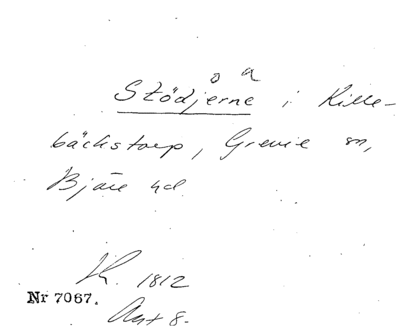 o a
Stödjerne i Kille-
bäckstorp, Grevie sn,
Bjäre hd
1812
Nr 7067. Akt 8.